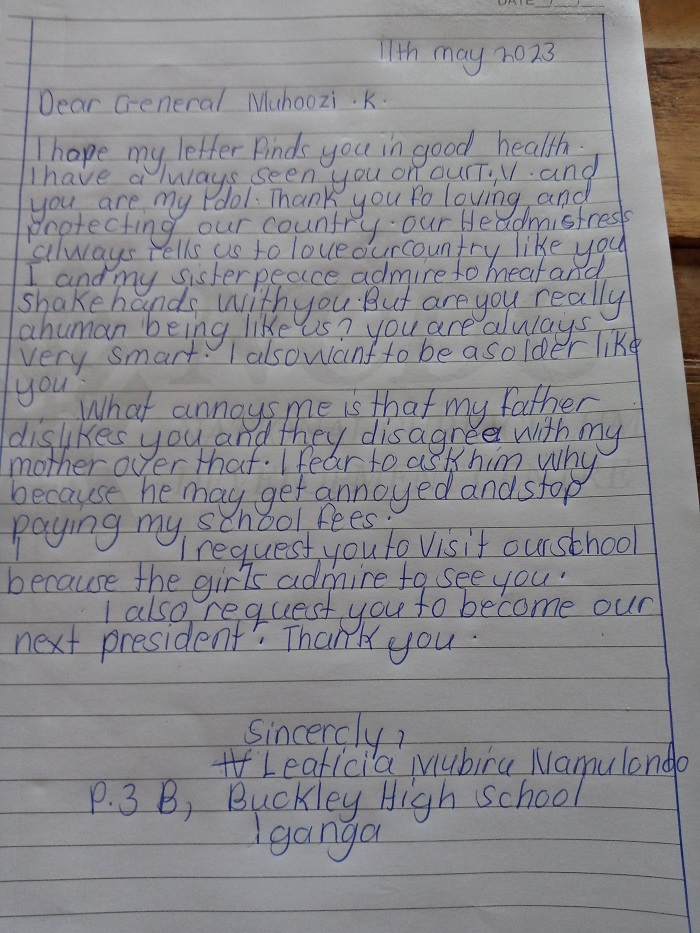 DATE
11th may 2023
Dear General Muhoozi .K.
I hope my letter finds you in good health.
I have always seen you on our T.V. and
you are my Idol. Thank you fo loving and
protecting our country. our Headmistress
always tells us to love our country like you
I and my sister peace admire to meat and
shake hands with you. But are you really
a human being like us? you are always
very smart. I also want to be a solder like
you.
What annoys me is that my father
dislikes you and they disagree with my
mother over that. I fear to ask him why
because he may get annoyed and stop
paying my school fees.
I request you to Visit our school
because the girls admire to see you.
I also request you to become our
next president. Thank you.
Sincerely,
Leaticia Mubiru Namulondo
P.3 B, Buckley High School
Iganga